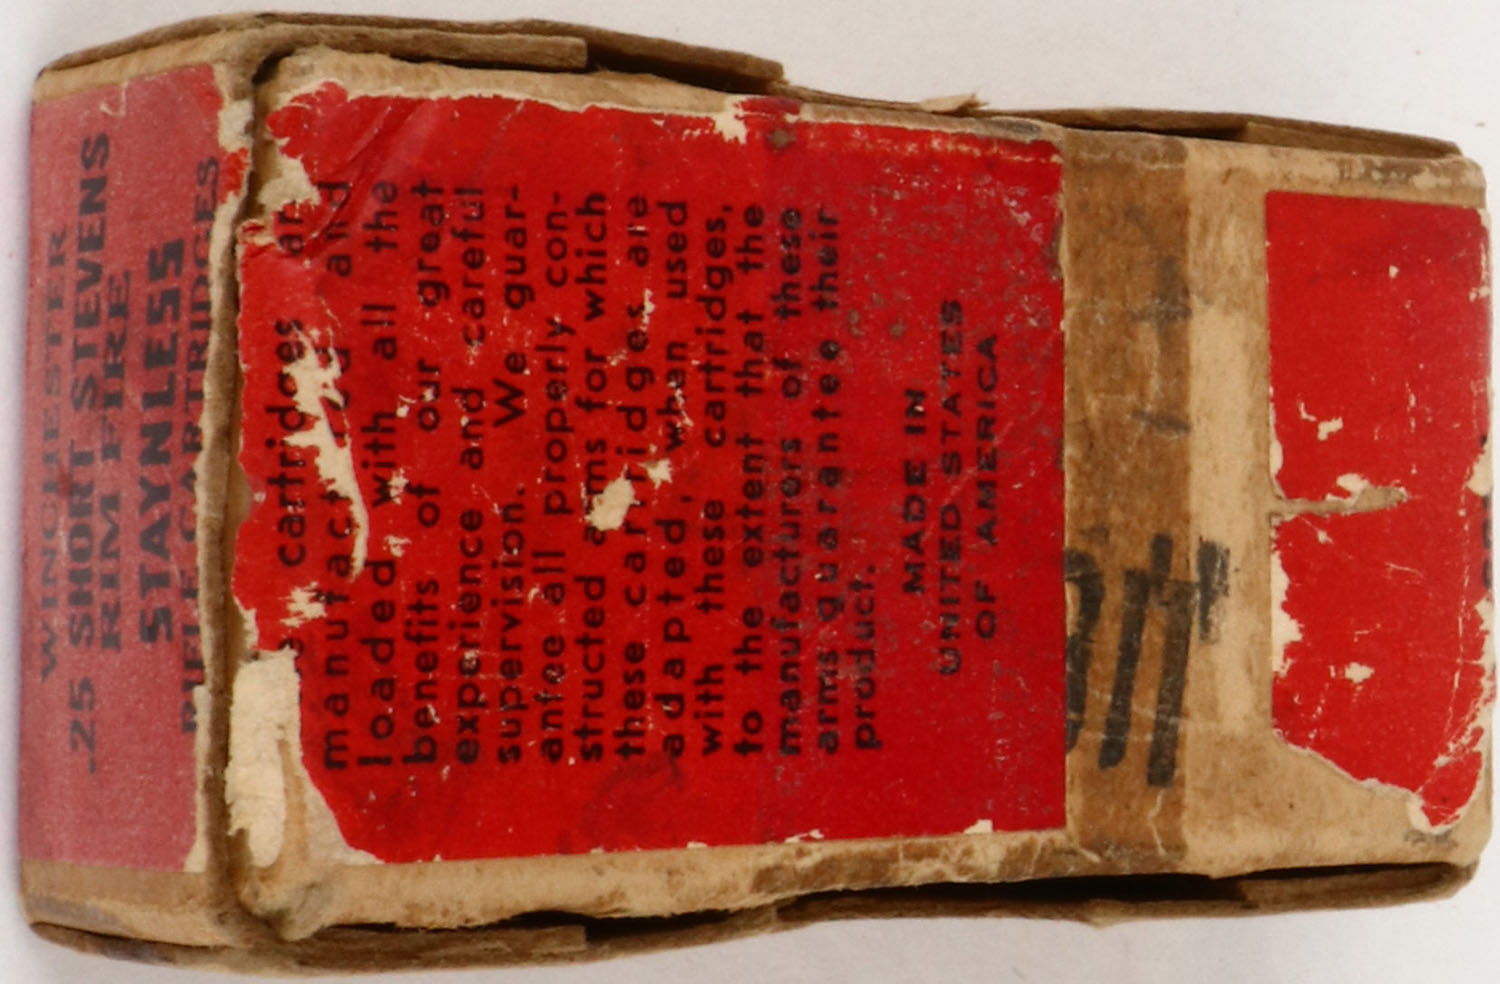 WINCHESTER
.25 SHORT STEVENS
RIM FIRE
STAYNLESS
RIFLE CARTRIDGES
cartridges
and
loaded with all the
benefits of our great
experience and careful
supervision. We guar-
antee all properly con-
structed arms for which
these cartridges are
adapted, when used
with these cartridges,
to the extent that the
manufacturers of these
arms guarantee their
product.
MADE IN
UNITED STATES
OF AMERICA